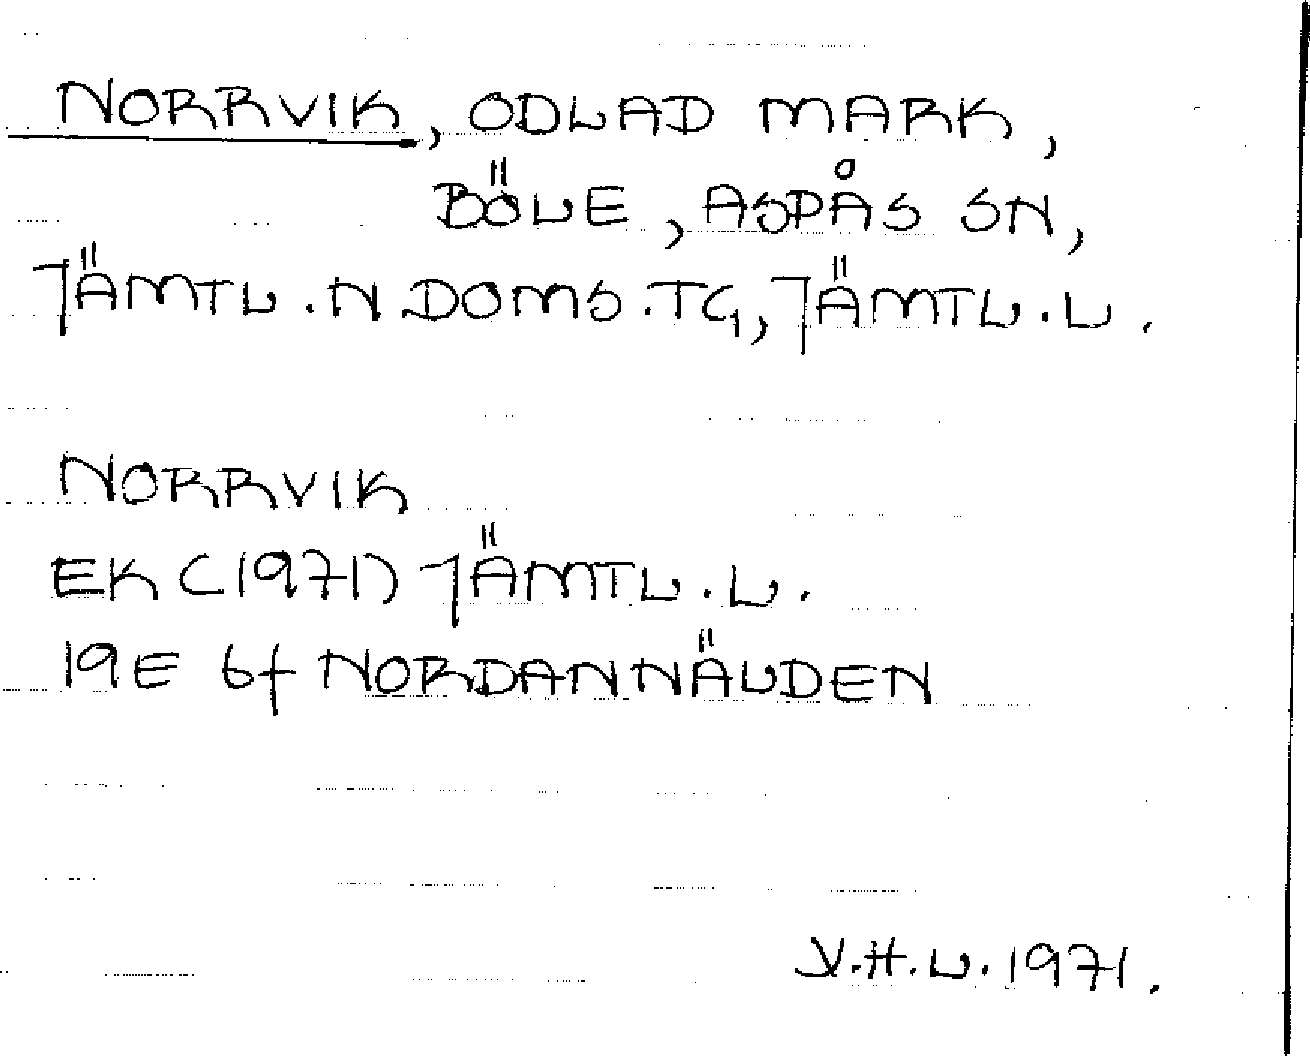 NORRVIK, ODLAD MARK,
BÖLE, ASPÅS SN,
JÄMTL.N.DOMS.TG, JÄMTL.L.
NORRVIK
EK (1971) JÄMTL.L.
19E 6f NORDANNÄLDEN
V.H.L. 1971.